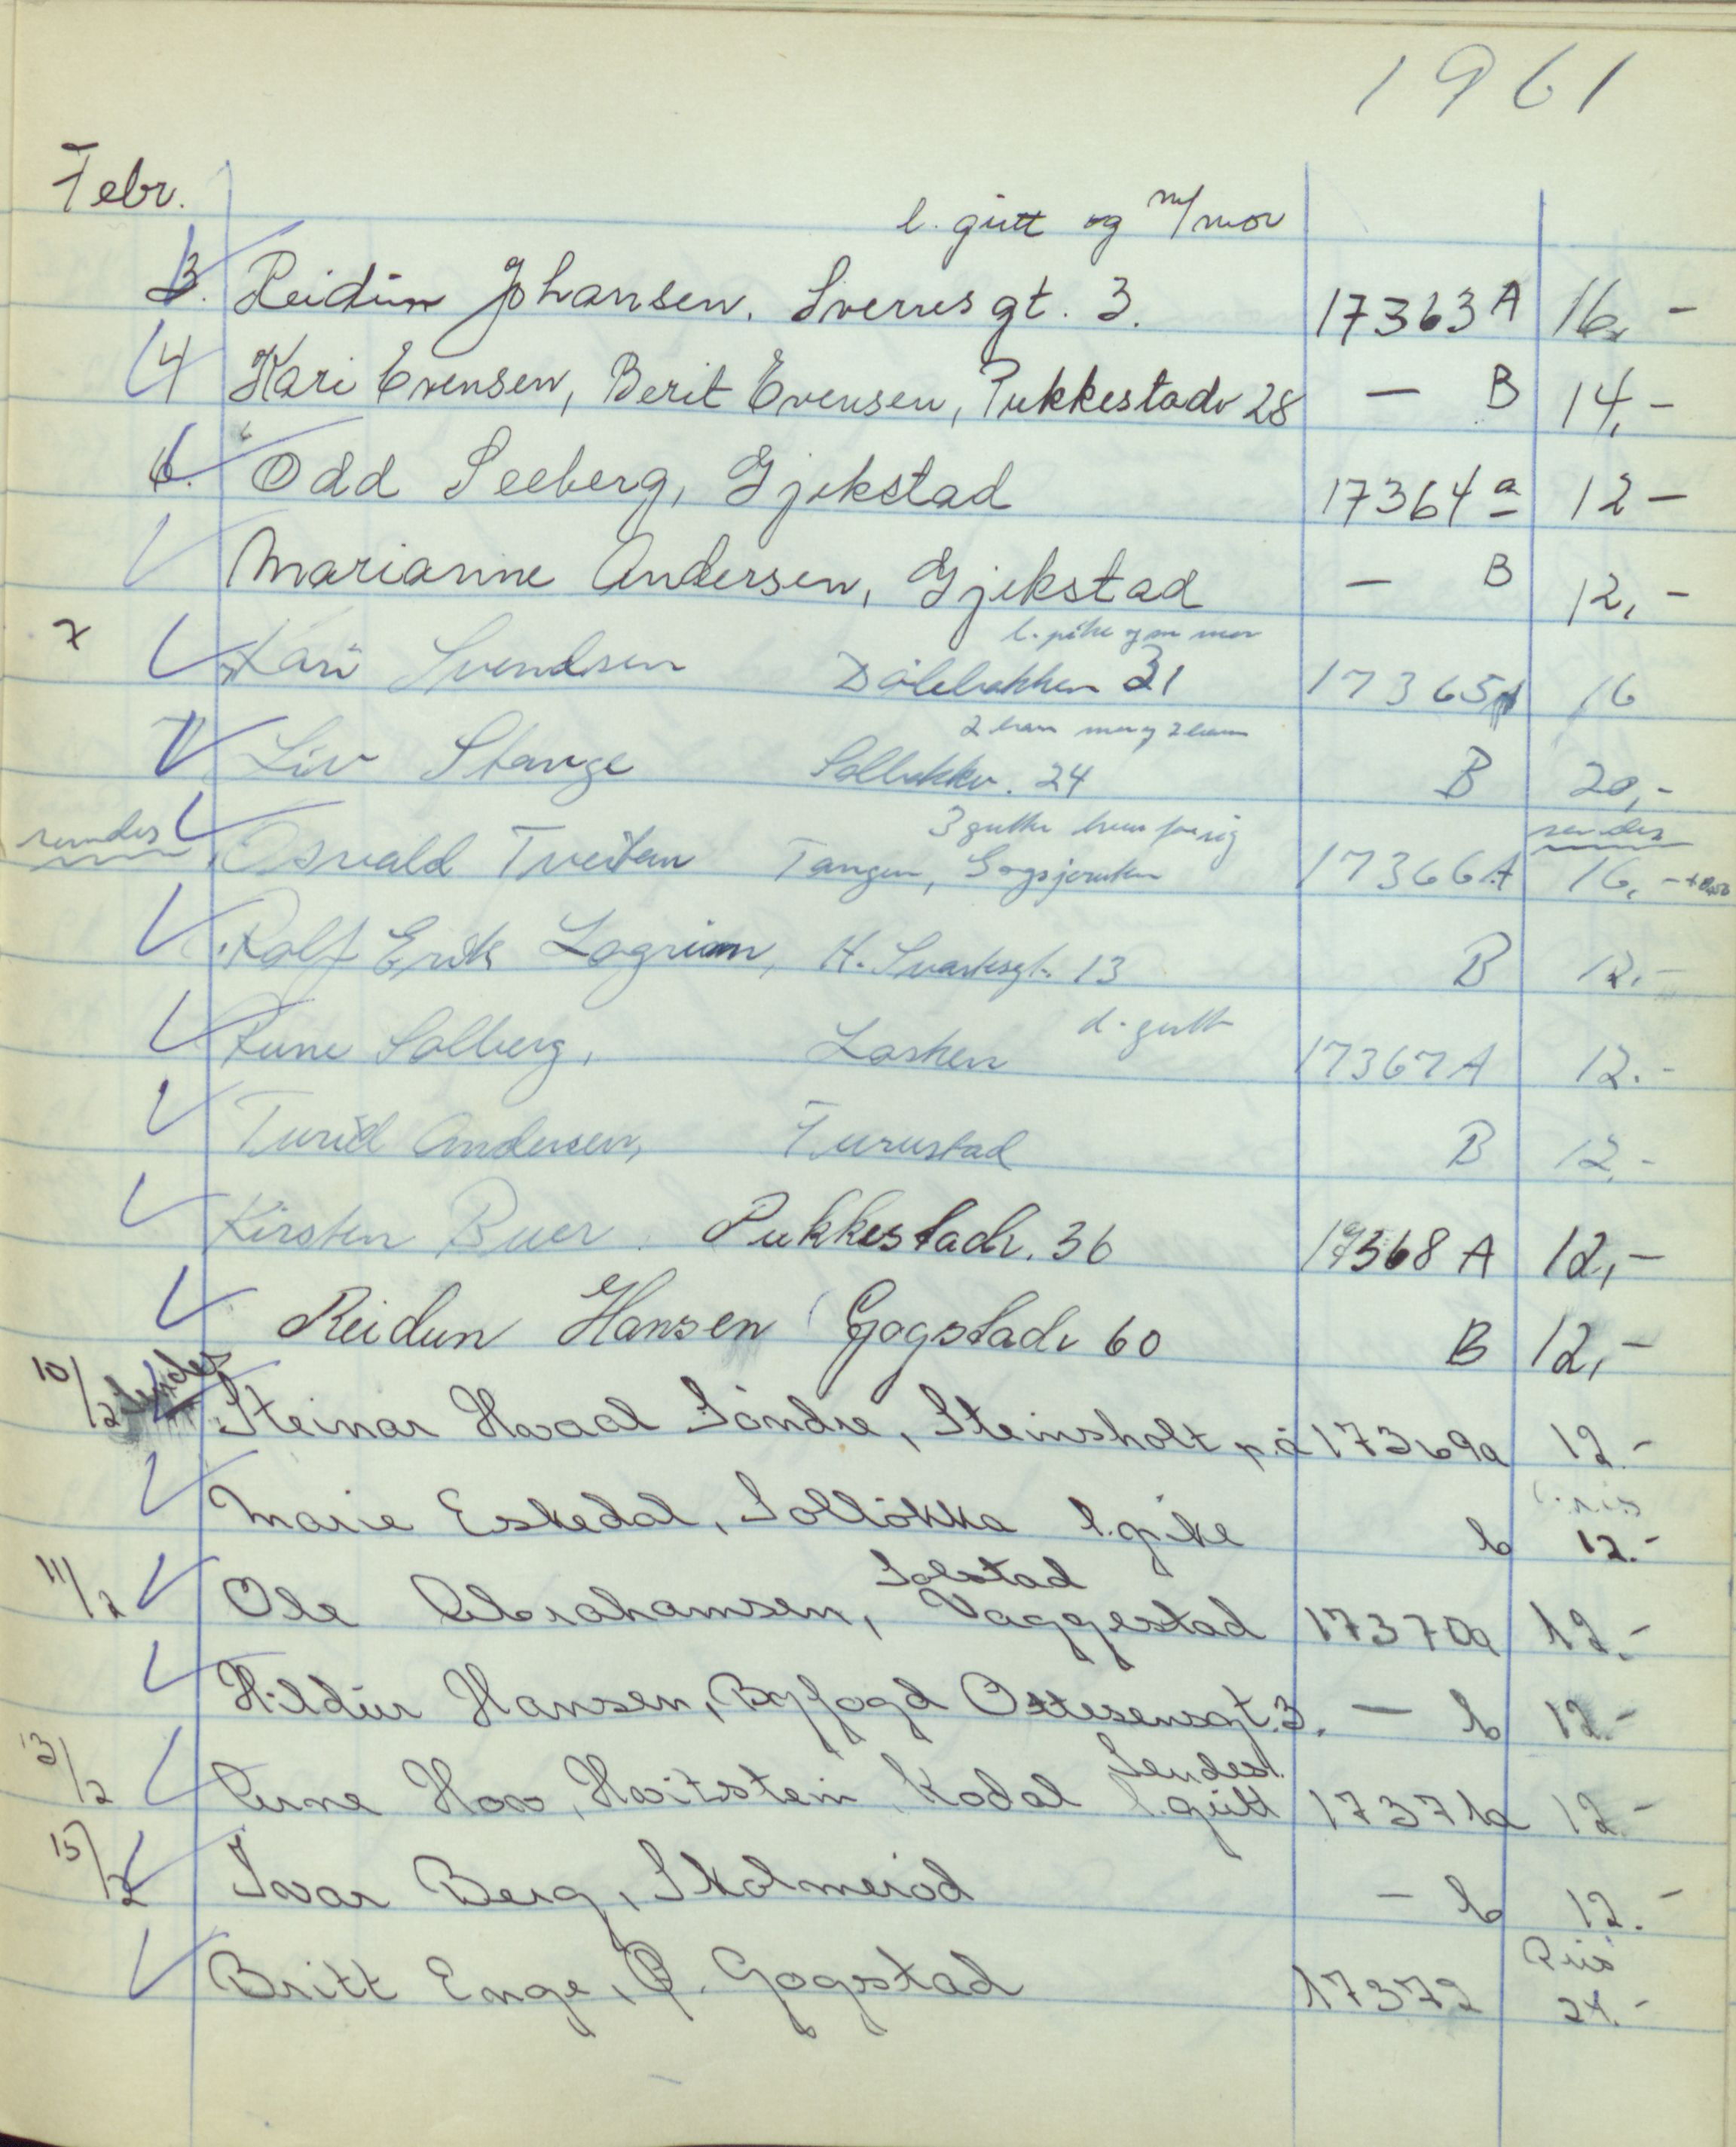 1961
Febr.
l. gutt og m/mor
3. Reidun Johansen. Sverresgt. 3. 17363 A 16,-
4 Kari Evensen, Berit Evensen, Pukkestadv 28 — B 14,-
6. Odd Seeberg, Gjekstad 17364 a 12-
Marianne Andersen, Gjekstad — B 12,-
l. pike og m mor
7 Kari Svendsen Dølebakken 31 17365A 16
2 barn mor og 2 barn
7 Liv Stange Solbakkv. 24 B 20,-
3 gutter hver for sig
sendes Osvald Tveitan Tangen, 17366A sendes 16,-
Rolf Erik H. Svartesgt. 13 B 12.-
d. gutt
Rune Solberg, Lasken 17367A 12.-
Turid Andersen, Furustad B 12.-
Kirsten Buer. Pukkestadv. 36 17368 A 12,-
Reidun Hansen Gogstadv 60 B 12,-
10/2 sendes Steinar Hvaal Söndre, Steinsholt p.å 17369a 12.-
Marie Eskedal, Solløkka l.pike b 12.-
Solstad
11/2 Ole Abrahamsen, Vaggestad 17370a 12.-
Hildur Hansen, Byfogd Ottesensgt.3. — b 12.-
Sendes!
13/2 Arne Hov, Hvitstein Kodal l.gutt 17371a 12.-
15/2 Ivar Berg, Skolmeröd — b 12.-
Pris
Britt Enge, Ø. Gogstad 17372 24.-